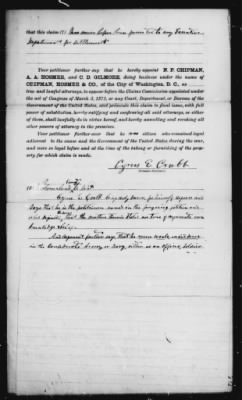 that this claim
been presented to any
Department for settlement
Your petitioner further say that he hereby appoint N. P. CHIPMAN,
A. A. HOSMER, and C. D. GILMORE, doing business under the name of
CHIPMAN, HOSMER & CO., of the City of Washington, D. C., as
true and lawful attorneys, to appear before the Claims Commission appointed under
the act of Congress of March 3, 1871, or any Court, Department, or Bureau of the
Government of the United States, and prosecute this claim to final issue, with full
power of substitution, hereby ratifying and confirming all said attorneys, or either
of them, shall lawfully do in virtue hereof, and hereby annulling and revoking all
other powers of attorney in the premises.
Your petitioner further says that he was citizen who remained loyal
adherent to the cause and the Government of the United States during the war,
and were so loyal before and at the time of the taking or furnishing of the property
for which claim is made.
Cyrus E. Crabb
Cyrus E. Crabb being duly sworn
says that he is the petitioner named in the foregoing petition
that the matters therein stated are true of deponents own
knowledge
And deponent further says that he never
in the Confederate Army or Navy, either as an officer, soldier